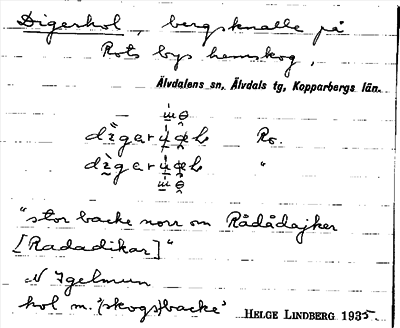 Digerhol, bergsknalle på
Rots bys hemskog,
Älvdalens sn, Älvdals tg, Kopparbergs län.
Ro.
"
"stor backe norr om Rådådajker
[Radadikar]"
N Igelmun
hol m. '(skogs)backe'
HELGE LINDBERG 1935.